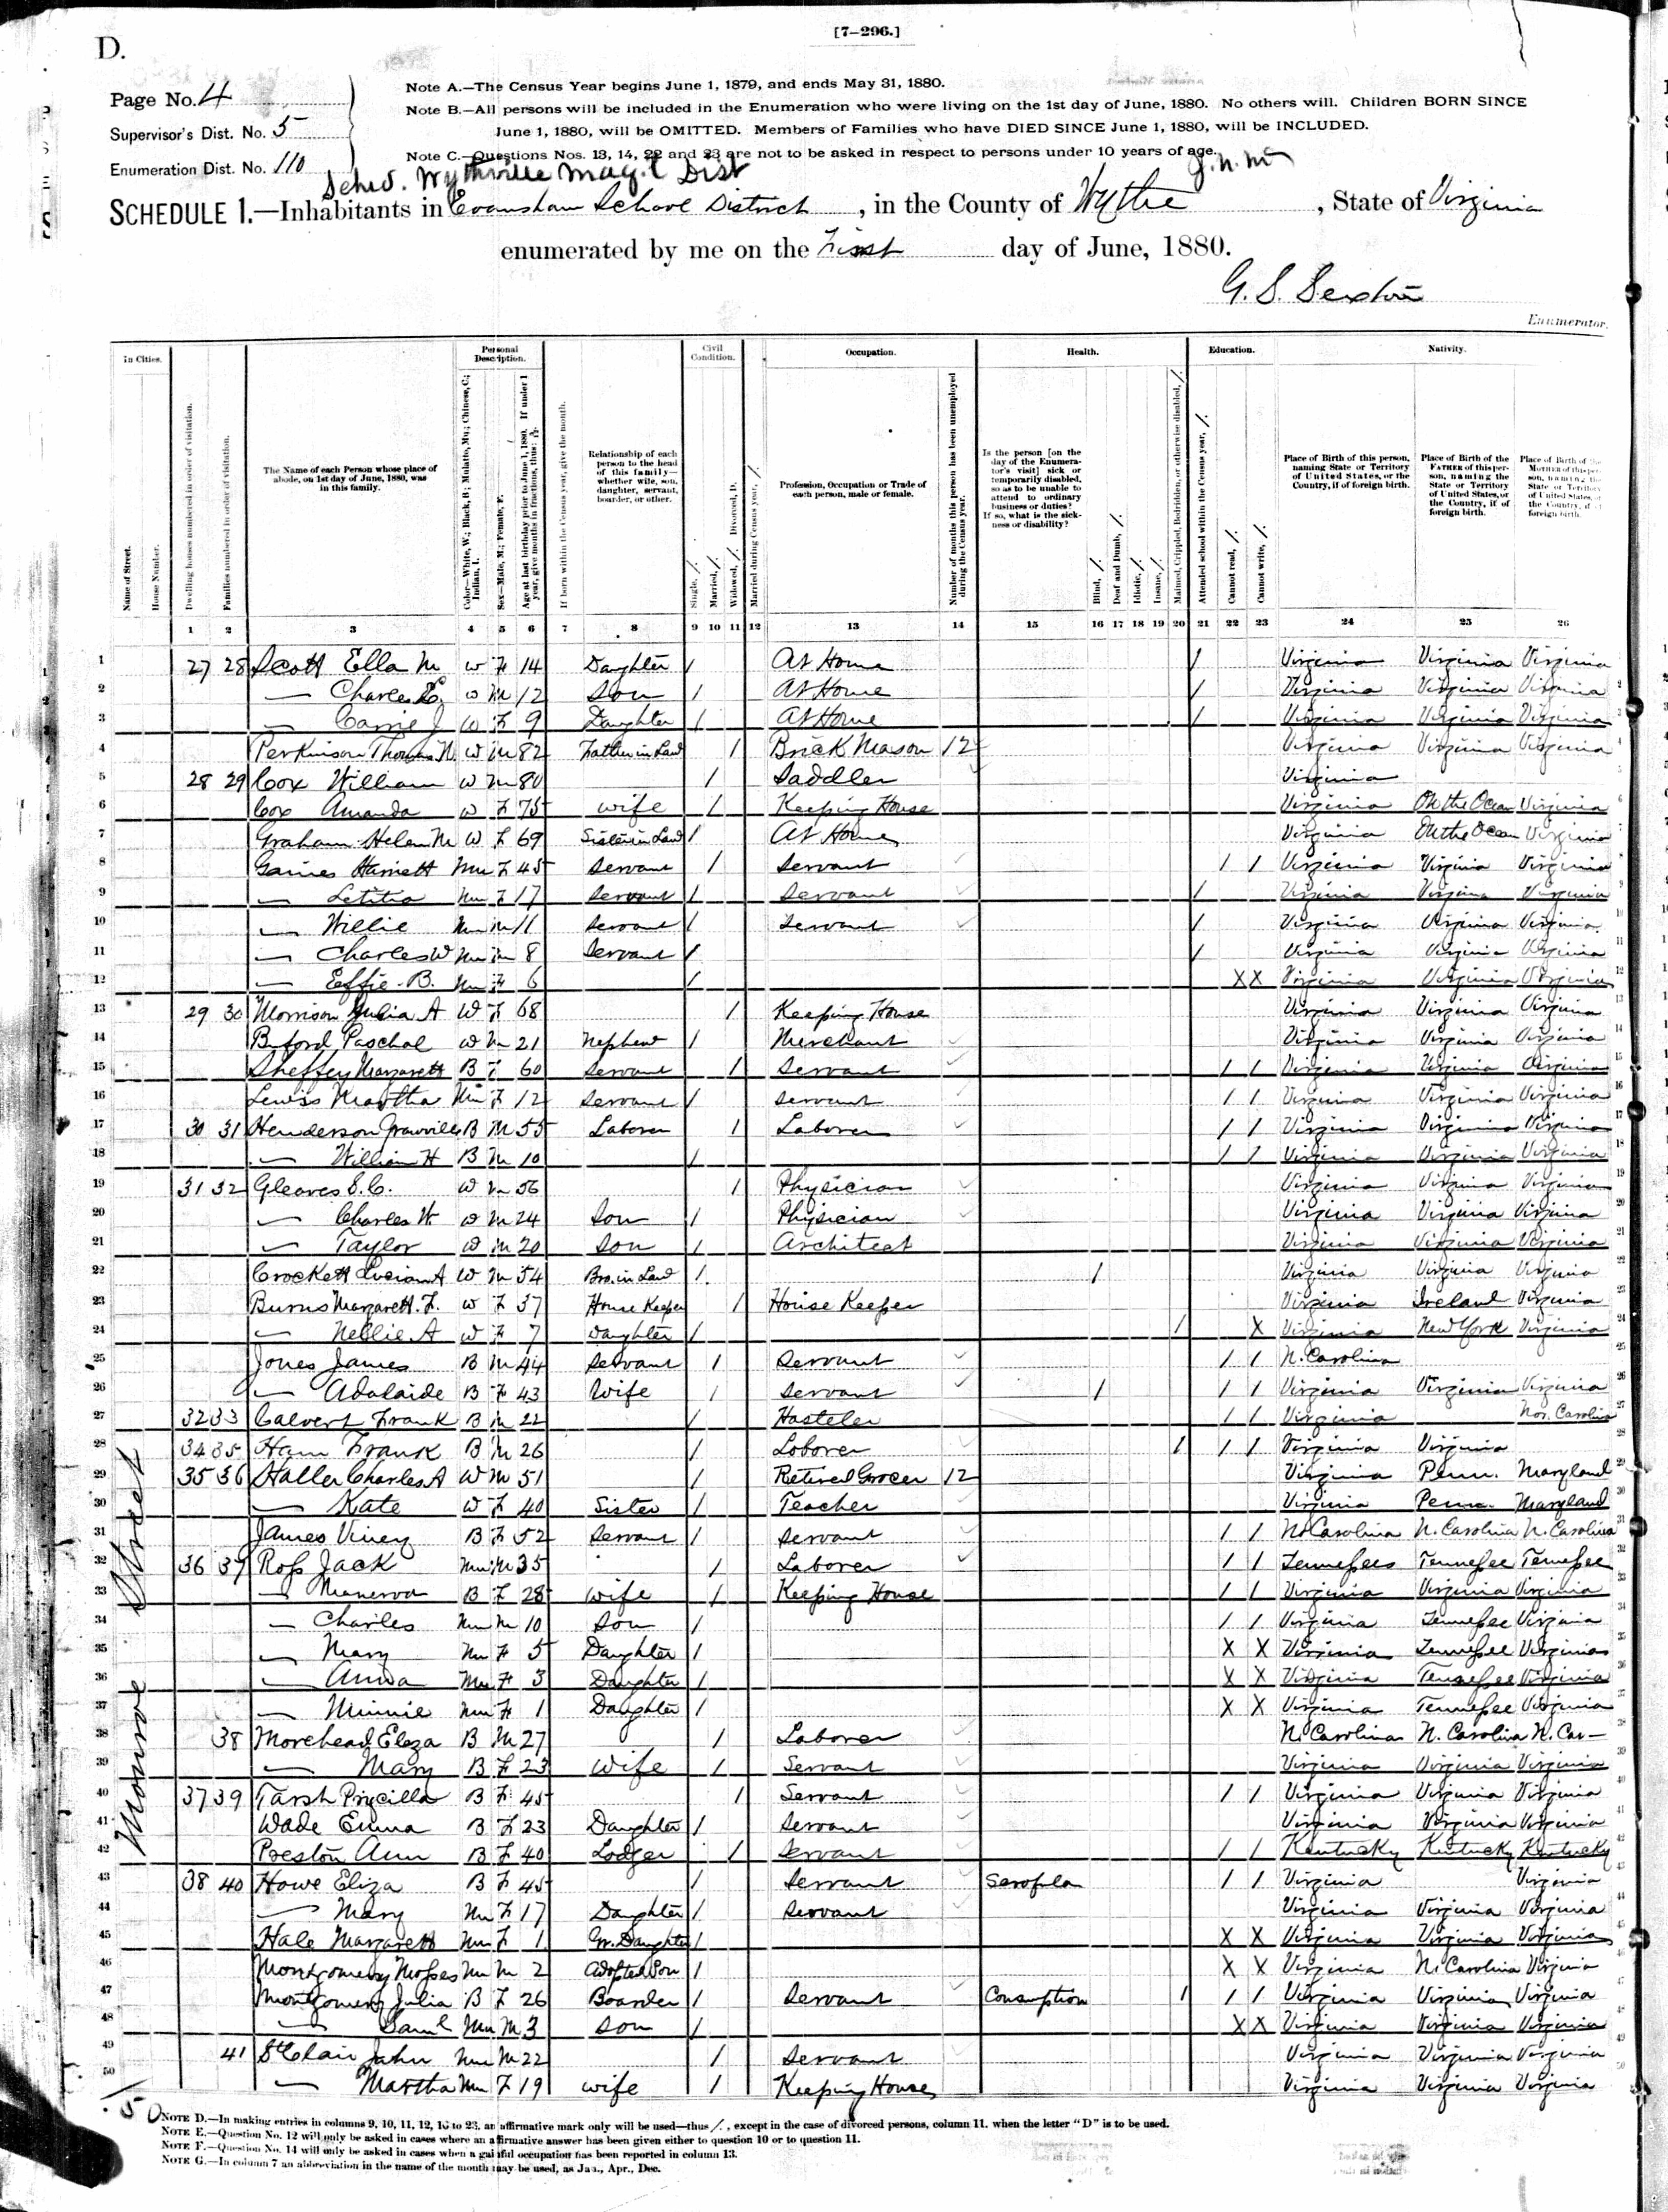 D.
[7-296.]
Page No. 4
Supervisor's Dist. No. 5
Enumeration Dist. No. 110
Note A.—The Census Year begins June 1, 1879, and ends May 31, 1880.
Note B.—All persons will be included in the Enumeration who were living on the 1st day of June, 1880. No others will. Children BORN SINCE
June 1, 1880, will be OMITTED. Members of Families who have DIED SINCE June 1, 1880, will be INCLUDED.
Note C.—Questions Nos. 13, 14, 22 and 23 are not to be asked in respect to persons under 10 years of age.
Wytheville Mag.l Dist
SCHEDULE 1.—Inhabitants in Evansham School District, in the County of Wythe, State of Virginia
enumerated by me on the First day of June, 1880.
G. S. Sexton
Enumerator.
In Cities. Personal Description. Civil Condition. Occupation. Health. Education. Nativity.
Name of Street.
House Number.
Dwelling houses numbered in order of visitation.
Families numbered in order of visitation.
The Name of each Person whose place of abode, on 1st day of June, 1880, was in this family.
Color—White, W.; Black, B.; Mulatto, Mu.; Chinese, C.; Indian, I.
Sex—Male, M.; Female, F.
Age at last birthday prior to June 1, 1880. If under 1 year, give months in fractions, thus:
If born within the Census year, give the month.
Relationship of each person to the head of this family—whether wife, son, daughter, servant, boarder, or other.
Single, /.
Married, /.
Widowed, /. Divorced, D.
Married during Census year, /.
Profession, Occupation or Trade of each person, male or female.
Number of months this person has been unemployed during the Census year.
Is the person [on the day of the Enumerator's visit] sick or temporarily disabled, so as to be unable to attend to ordinary business or duties? If so, what is the sickness or disability?
Blind, /.
Deaf and Dumb, /.
Idiotic, /.
Insane, /.
Maimed, Crippled, Bedridden, or otherwise disabled, /.
Attended school within the Census year, /.
Cannot read, /.
Cannot write, /.
Place of Birth of this person, naming State or Territory of United States, or the Country, if of foreign birth.
Place of Birth of the FATHER of this person, naming the State or Territory of United States, or the Country, if of foreign birth.
Place of Birth of the MOTHER of this person, naming the State or Territory of United States, or the Country, if of foreign birth.
1 2 3 4 5 6 7 8 9 10 11 12 13 14 15 16 17 18 19 20 21 22 23 24 25 26
1 27 28 Scott Ella M W F 14 Daughter / At Home / Virginia Virginia Virginia
2 — Charles E. W M 12 Son / At Home / Virginia Virginia Virginia
3 — Carrie J W F 9 Daughter / At Home / Virginia Virginia Virginia
4 Perkinson Thomas N. W M 82 Father in Law / Brick Mason 12 Virginia Virginia Virginia
5 28 29 Cox William W M 80 / Saddler Virginia
6 Cox Amanda W F 75 wife / Keeping House Virginia On the Ocean Virginia
7 Graham Helen M W F 69 Sister in Law / At Home Virginia On the Ocean Virginia
8 Gaines Harriett Mu F 45 Servant / Servant / / Virginia Virginia Virginia
9 — Letitia Mu F 17 Servant / Servant / Virginia Virginia Virginia
10 — Willie Mu M 11 Servant / Servant / Virginia Virginia Virginia
11 — Charles W Mu M 8 Servant / / Virginia Virginia Virginia
12 — Effie B. Mu F 6 / X X Virginia Virginia Virginia
13 29 30 Morrison Julia A W F 68 / Keeping House Virginia Virginia Virginia
14 Buford Paschal W M 21 Nephew / Merchant Virginia Virginia Virginia
15 Sheffey Margarett B F 60 Servant / Servant / / Virginia Virginia Virginia
16 Lewis Martha Mu F 12 Servant / Servant / / Virginia Virginia Virginia
17 30 31 Henderson Granville B M 55 Laborer / Laborer / / Virginia Virginia Virginia
18 — William H B M 10 / / / Virginia Virginia Virginia
19 31 32 Gleaves S. C. W M 56 / Physician Virginia Virginia Virginia
20 — Charles W. W M 24 Son / Physician Virginia Virginia Virginia
21 — Taylor W M 20 Son / Architect Virginia Virginia Virginia
22 Crockett Lucian A W M 54 Bro. in Law / / Virginia Virginia Virginia
23 Burns Margarett. F. W F 37 House Keeper / House Keeper Virginia Ireland Virginia
24 — Nellie A W F 7 Daughter / / X Virginia New York Virginia
25 Jones James B M 44 Servant / Servant / / N. Carolina
26 — Adalaide B F 43 Wife / Servant / / / Virginia Virginia Virginia
27 32 33 Calvert Frank B M 22 / Hosteler / / Virginia Nor. Carolina
28 34 35 Ham Frank B M 26 / Loborer / / / Virginia Virginia
29 35 36 Haller Charles A W M 51 / Retired Grocer 12 Virginia Penn. Maryland
30 — Kate W F 40 Sister / Teacher Virginia Penna. Maryland
31 James Viney B F 52 Servant / Servant / / N. Carolina N. Carolina N. Carolina
32 36 37 Ross Jack Mu M 35 / Laborer / / Tennessee Tennessee Tennessee
33 — Manerva B F 28 wife / Keeping House / / Virginia Virginia Virginia
34 — Charles Mu M 10 Son / / / Virginia Tennessee Virginia
35 — Mary Mu F 5 Daughter / X X Virginia Tennessee Virginia
36 — Anna Mu F 3 Daughter / X X Virginia Tennessee Virginia
37 — Minnie Mu F 1 Daughter / X X Virginia Tennessee Virginia
38 38 Morehead Eleza B M 27 / Laborer N. Carolina N. Carolina N. Car—
39 — Mary B F 23 Wife / Servant Virginia Virginia Virginia
40 37 39 Tarsh Pricilla B F 45 / Servant / / Virginia Virginia Virginia
41 Wade Emma B F 23 Daughter / Servant Virginia Virginia Virginia
42 Preston Ann B F 40 Lodger / Servant / / Kentucky Kentucky Kentucky
43 38 40 Howe Eliza B F 45 / Servant Scrofula / / Virginia Virginia
44 — Mary Mu F 17 Daughter / Servant Virginia Virginia Virginia
45 Hale Margarett Mu F 1 Gr. Daughter / X X Virginia Virginia Virginia
46 Montgomery Mosses Mu M 2 Adopted Son / X X Virginia N. Carolina Virginia
47 Montgomery Julia B F 26 Boarder / Servant Consumption / / / Virginia Virginia Virginia
48 — Saml Mu M 3 Son / X X Virginia Virginia Virginia
49 41 St Clair John Mu M 22 / Servant Virginia Virginia Virginia
50 — Martha Mu F 19 wife / Keeping House Virginia Virginia Virginia
Monroe Street
50
NOTE D.—In making entries in columns 9, 10, 11, 12, 16 to 23, an affirmative mark only will be used—thus /, except in the case of divorced persons, column 11, when the letter "D" is to be used.
NOTE E.—Question No. 12 will only be asked in cases where an affirmative answer has been given either to question 10 or to question 11.
NOTE F.—Question No. 14 will only be asked in cases when a gainful occupation has been reported in column 13.
NOTE G.—In column 7 an abbreviation in the name of the month may be used, as Jan., Apr., Dec.